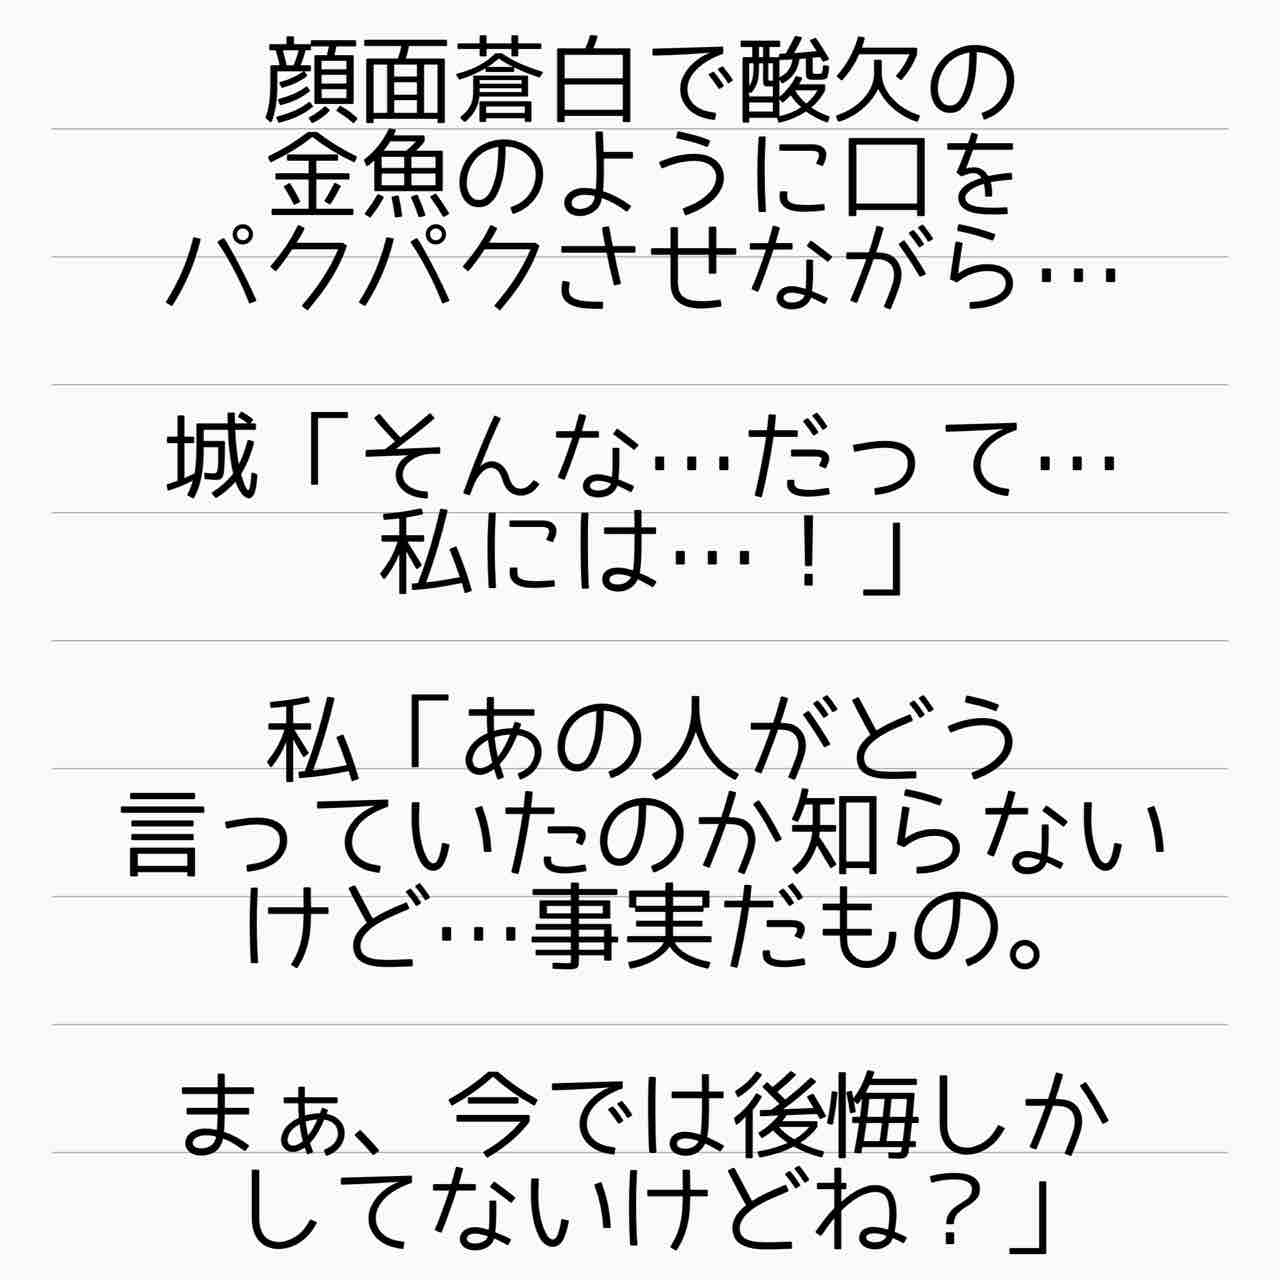 顔面蒼白で酸欠の
金魚のように口を
パクパクさせながら…
城「そんな…だって…
私には…！」
私「あの人がどう
言っていたのか知らない
けど…事実だもの。
まぁ、今では後悔しか
してないけどね？」